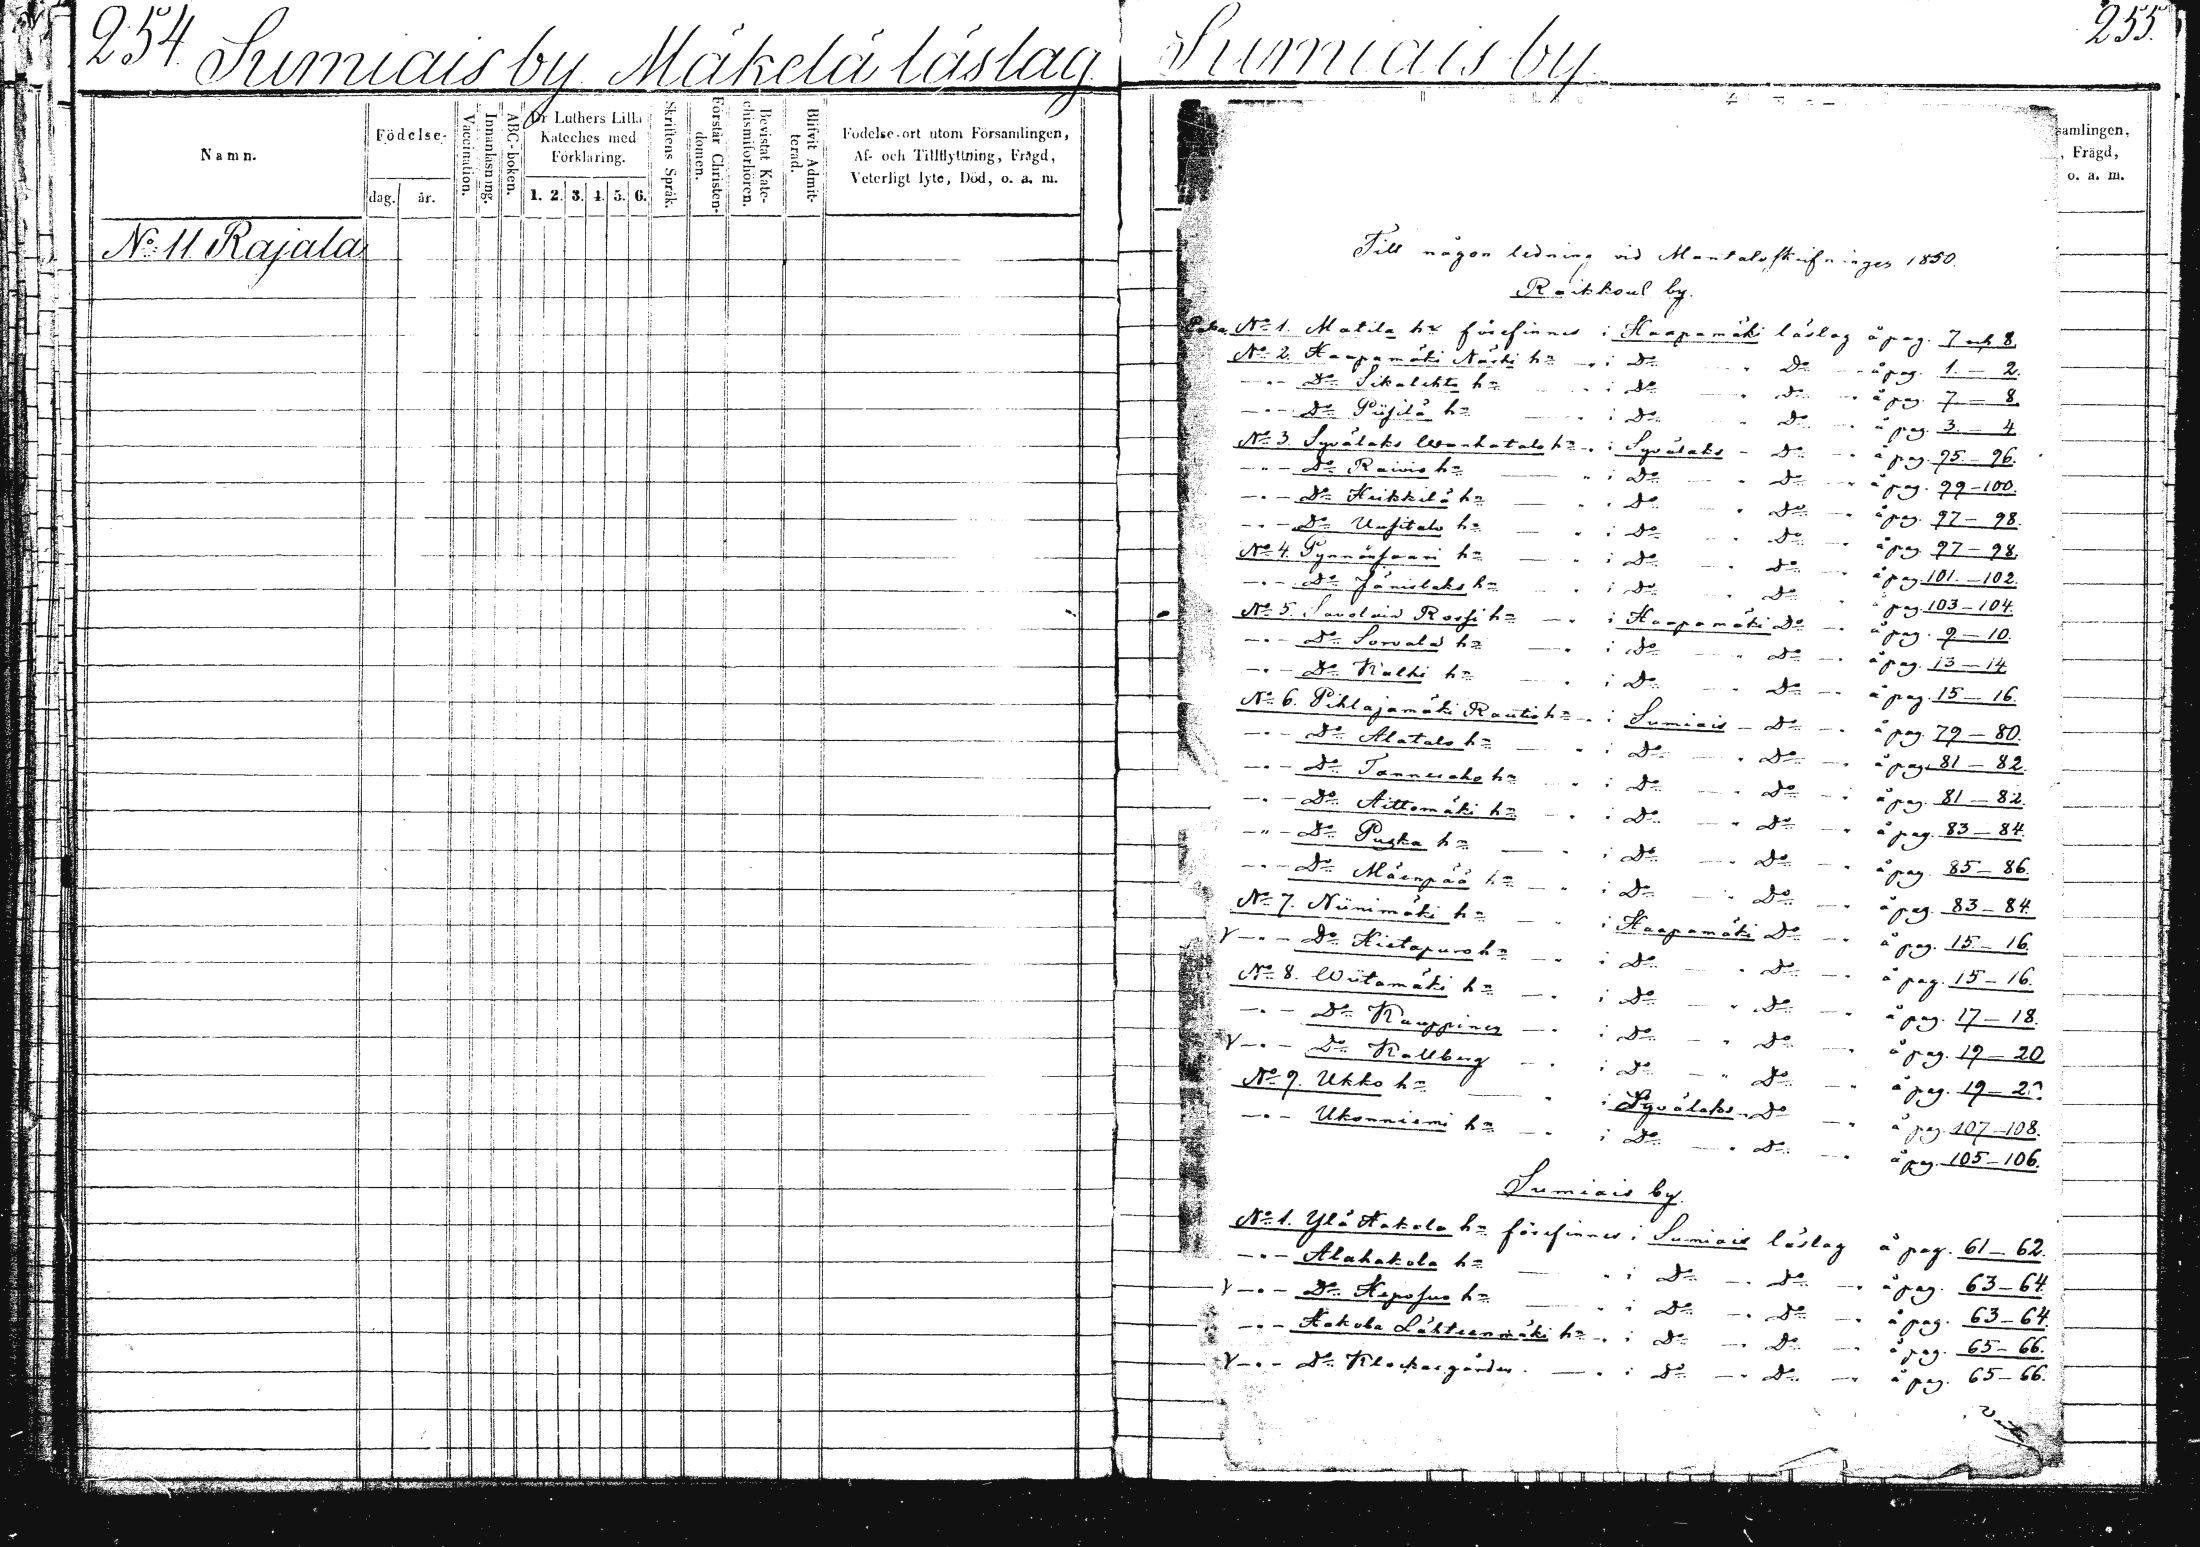 254. Sumiais by Mäkelä läslag
Namn.
Födelse-
dag.
år.
Vaccination.
Innanläsning.
ABC-boken.
Dr Luthers Lilla
Kateches med
Förklaring.
1. 2. 3. 4. 5. 6.
Skriftens Språk.
Förstår Christen-
domen.
Bevistat Kate-
chismiförhören.
Blifvit Admit-
terad.
Födelse-ort utom Församlingen,
Af- och Tillflyttning, Frägd,
Veterligt lyte, Död, o. a. m.
No 11 Rajala
Sumiais by
255.
samlingen,
, Frägd,
o. a. m.
Till någon ledning vid Mantalsskrifningen 1850.
Raikkoul by.
No 1. Matila hn förefinnes i Haapamäki läslag å pag. 7 och 8.
No 2. Haapamäki Näski hn -"- i Do " Do -"- å pag. 1. — 2.
-"- Do Sikalehto hn — " i Do " Do -"- å pag. 7 — 8.
-"- Do Piisilä hn — " i Do " Do -"- å pag. 3. — 4
No 3. Syvälaks Wanhatalo hn -"- i Syvälaks - Do -"- å pag. 95. — 96.
-"- Do Raivio hn — " i Do " Do -"- å pag. 99 — 100.
-"- Do Heikkilä hn — " i Do " Do -"- å pag. 97 — 98.
-"- Do Uusitalo hn — " i Do " Do -"- å pag. 97 — 98.
No 4. Pynnönsaari hn — " i Do " Do -"- å pag. 101. — 102.
-"- Do Jänislaks hn — " i Do " Do " å pag. 103 — 104.
No 5. Savolais Rossi hn — " i Haapamäki Do -"- å pag. 9 — 10.
-"- Do Sorvala hn — " i Do " Do -"- å pag. 13 — 14
-"- Do Kalki hn — " i Do " Do -"- å pag. 15 — 16.
No 6. Pihlajamäki Rautio hn -"- i Sumiais - Do -"- å pag. 79 — 80.
-"- Do Alatalo hn — " i Do " Do -"- å pag. 81 — 82.
-"- Do Tannesaho hn — " i Do " Do -"- å pag. 81 — 82.
-"- Do Aittomäki hn — " i Do " Do -"- å pag. 83 — 84.
-"- Do Puska hn — " i Do " Do -"- å pag. 85 — 86.
-"- Do Mäenpää hn — " i Do " Do -"- å pag. 83 — 84.
No 7. Niinimäki hn — " i Haapamäki Do -"- å pag. 15 — 16.
V -"- Do Hietapuro hn — " i Do " Do -"- å pag. 15 — 16.
No 8. Wiitamäki hn — " i Do " Do -"- å pag. 17 — 18.
-"- Do Kauppinen — " i Do " Do -"- å pag. 19 — 20
V -"- Do Kallberg — " i Do " Do -"- å pag. 19 — 20
No 9. Ukko hn — " i Syvälaks Do -"- å pag. 107 — 108.
-"- Ukonniemi hn — " i Do " Do -"- å pag. 105 — 106.
Sumiais by.
No 1. Ylä Hakola hn förefinnes i Sumiais läslag å pag. 61 — 62.
-"- Alahakola hn — " i Do -"- Do -"- å pag. 63 — 64.
V -"- Do Heposuo hn — " i Do -"- Do -"- å pag. 63 — 64.
-"- Hakola Lähteenmäki hn -"- i Do -"- Do -"- å pag. 65 — 66.
V -"- Do Klockargården. — " i Do -"- Do -"- å pag. 65 — 66.